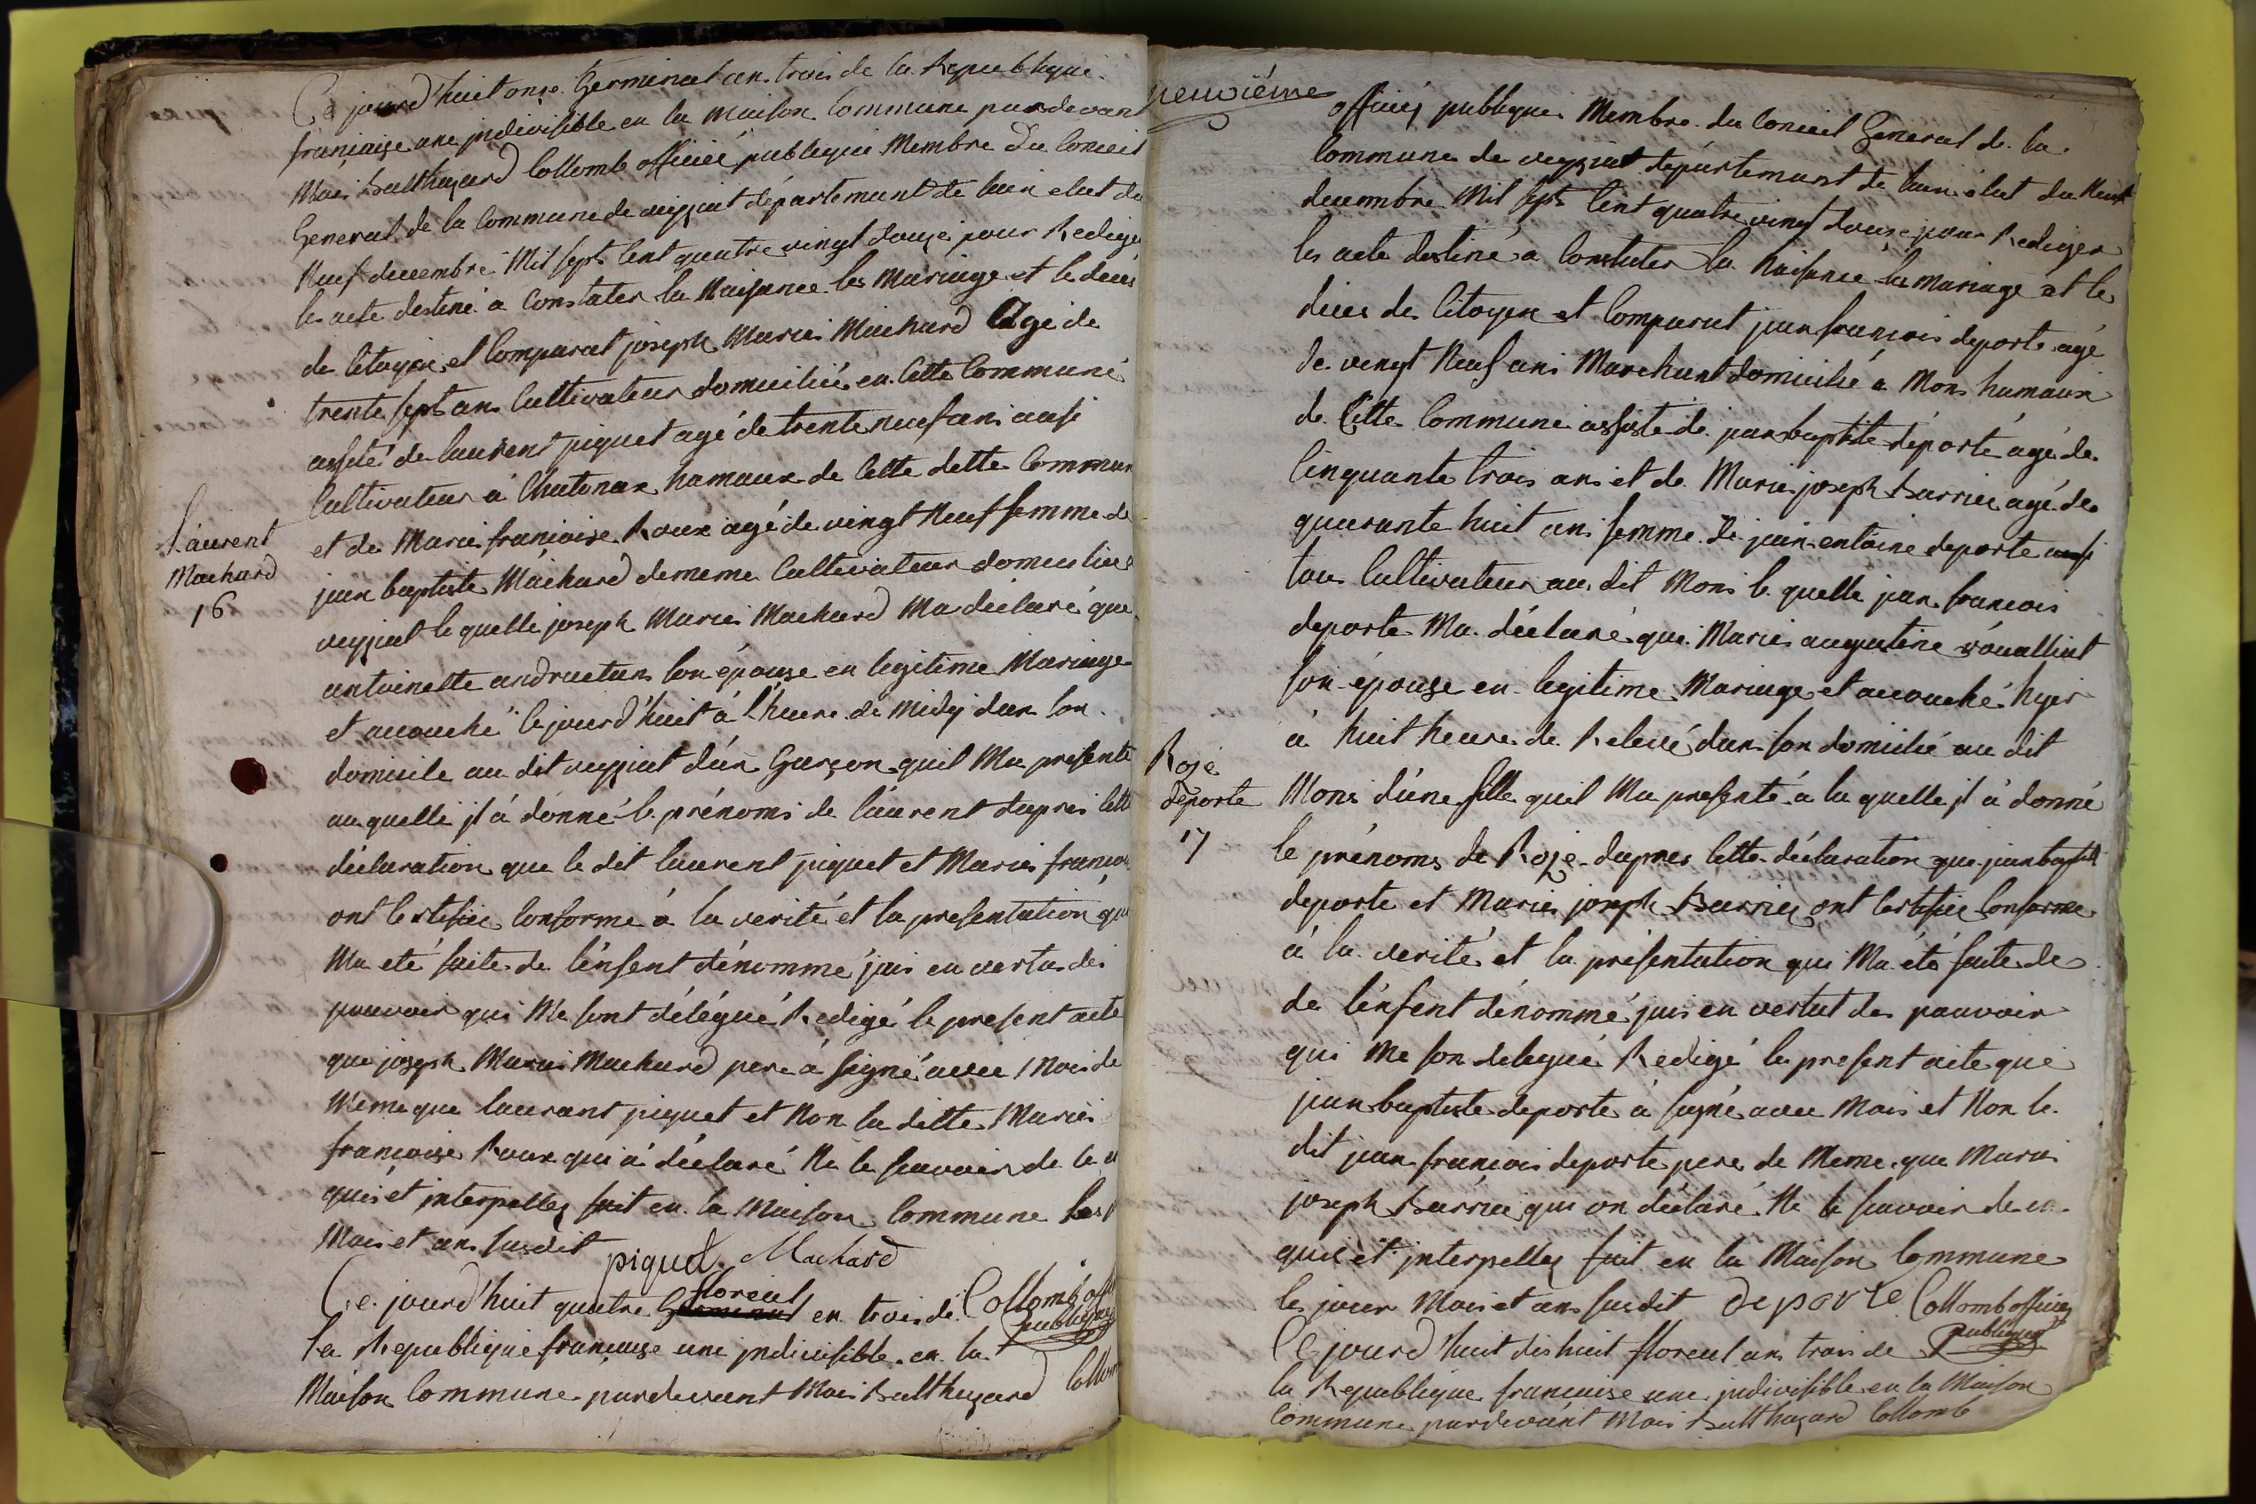 Ce jourd'huit onze Germinal an trois de la Republique
françaize une jndivisible en la maison Commune pardevant
Moi Balthazard Collomb officié publique Membre du Conseil
General de la Commune de veyziat département de lain elut du
Neuf decembre Mil sept Cent quatre vingt douze pour Redigé
les acte destiné a Constater la Naisance les Mariage et le deces
de Citoyen et Comparat joseph Marie Machard Agé de
trente sept ans Cultivateur domicilié en Cette Commune
assité de laurent piquet agé de trente neuf ans ausi
Cultivateur á Chatonax hamaux de Cette ditte Commun
et de Marie françoise Roux agé de vingt Neuf femme de
Laurent
Machard
16
jean baptiste Machard de meme Cultivateur domicilié
veyziat le quelle joseph Marie Machard Ma déclaré que
antoinette andruetan son épouze en legitime Mariage
et accouché Cejourd'huit à l'heure de Midy dan son
domicile au dit veyziat d'un Garçon quil Ma presenté
au quelle jl à donné le prénoms de laurent dapres Cette
déclaration que le dit laurent piquet et Marie françoi
ont Certifié Conforme á la verité et la presentation qui
Ma eté faite de l'enfent dénommé jais en vertu des
pouvoir qui Me sont délégué Redigé le present acte
que joseph Marie Machard pere á signé avec Moi de
Même que laurant piquet et Non la ditte Marie
françoise Roux qui á déclaré Ne le savoir de ce
quis et jnterpellez fait en la Maison Commune les
Mois et ans susdit
piquet Machard
Collomb offi
publique
Ce jourd'huit quatre Germinal floreal en trois de
la Republique françaize une jndivisible en la
Maison Commune pardevant Moi Balthazard Collom
neuvième
officié publique Membre du Conseil General de la
Commune de veyziat département de lain élut du Neuf
decembre Mil sept Cent quatre vingt douze pour Rediger
les acte destiné a Constater la Naisance les Mariage et le
deces de Citoyen et Comparut jean françois deporte agé
de vingt Neuf ans Marchant domicilié a Mons hamaux
de Cette Commune assisté de jean baptiste déporte ágé de
Cinquante trois ans et de Marie joseph Barrié agé de
quarante huit ans femme de jean entoine deporte ausi
tous Cultivateur au dit Mons le quelle jean françois
deporte Ma déclaré que Marie augustine rouallint
son épouze en legitime Mariage et accouché hyer
à huit heure de Relevé dan son domicile au dit
Roze
deporte
17
Mons d'une fille quil Ma presenté á la quelle jl à donné
le prénoms de Roze dapres Cette déclaration que jean baptiste
deporte et Marie joseph Barriez ont Certifié Conforme
á la verité et la présentation qui Ma été faite de
de l'enfent dénommé jais en vertut des pouvoir
qui Me son delegué Redigé le present acte que
jean baptiste deporte á signé avec Moi et Non le
dit jean françois deporte pere de Meme que Marie
joseph Barrié qui on déclaré Ne le savoir de ce
quis et jnterpellez fait en la Maison Commune
les jour Mois et ans susdit deporte Collomb officié
publique
Ce jourd'huit dishuit floreal an trois de
la Republique française une jndivisible en la Maison
Commune pardevant Moi Balthazard Collomb